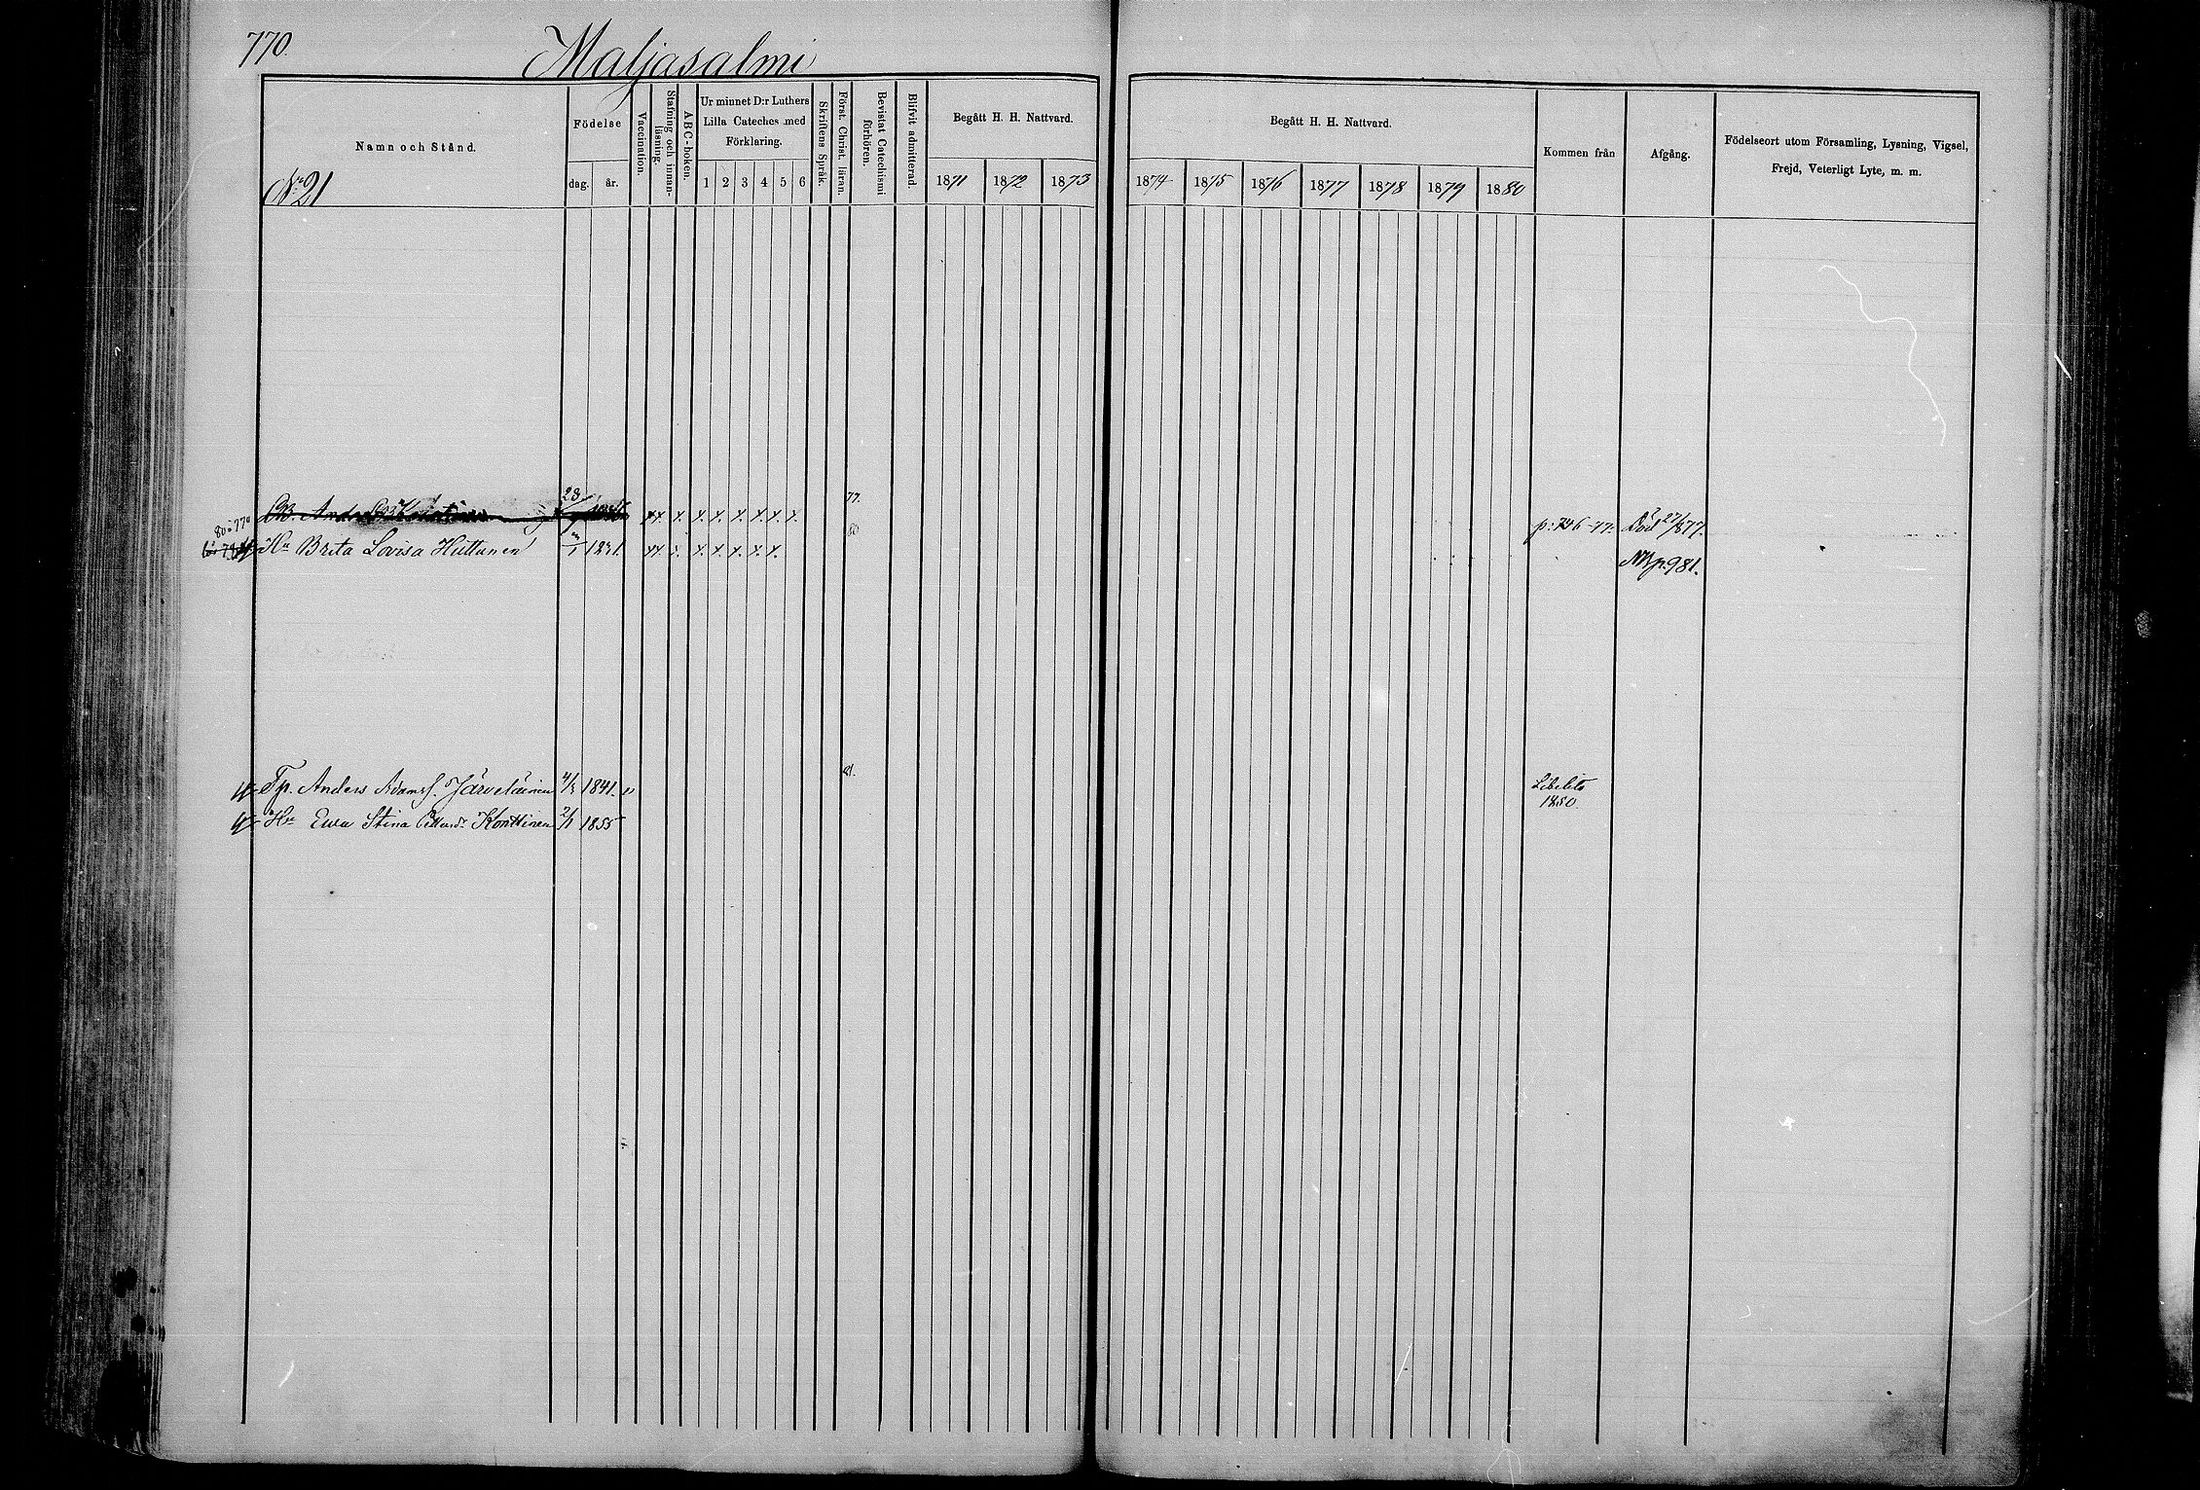 770.
Maljasalmi
Namn och Stånd.
No 21
Födelse
dag. år.
Vaccination.
Stafning och innanläsning.
ABC-boken.
Ur minnet D:r Luthers
Lilla Cateches med
Förklaring.
1 2 3 4 5 6
Skriftens Språk.
Först. Christ. läran.
Bevistat Catechismi
förhören.
Blifvit admitterad.
Begått H. H. Nattvard.
1871 1872 1873
Begått H. H. Nattvard.
1874 1875 1876 1877 1878 1879 1880
Kommen från
Afgång.
Födelseort utom Församling, Lysning, Vigsel,
Frejd, Veterligt Lyte, m. m.
28 77.
p: 746-77. Död 27/877.
Hu Brita Lovisa Huttunen 1831. 80
NB p. 981.
81.
Tp. Anders Adamsf. Järveläinen 4/3 1841. Libelits
1880.
Hu Ewa Stina Konttinen 2/1 1855